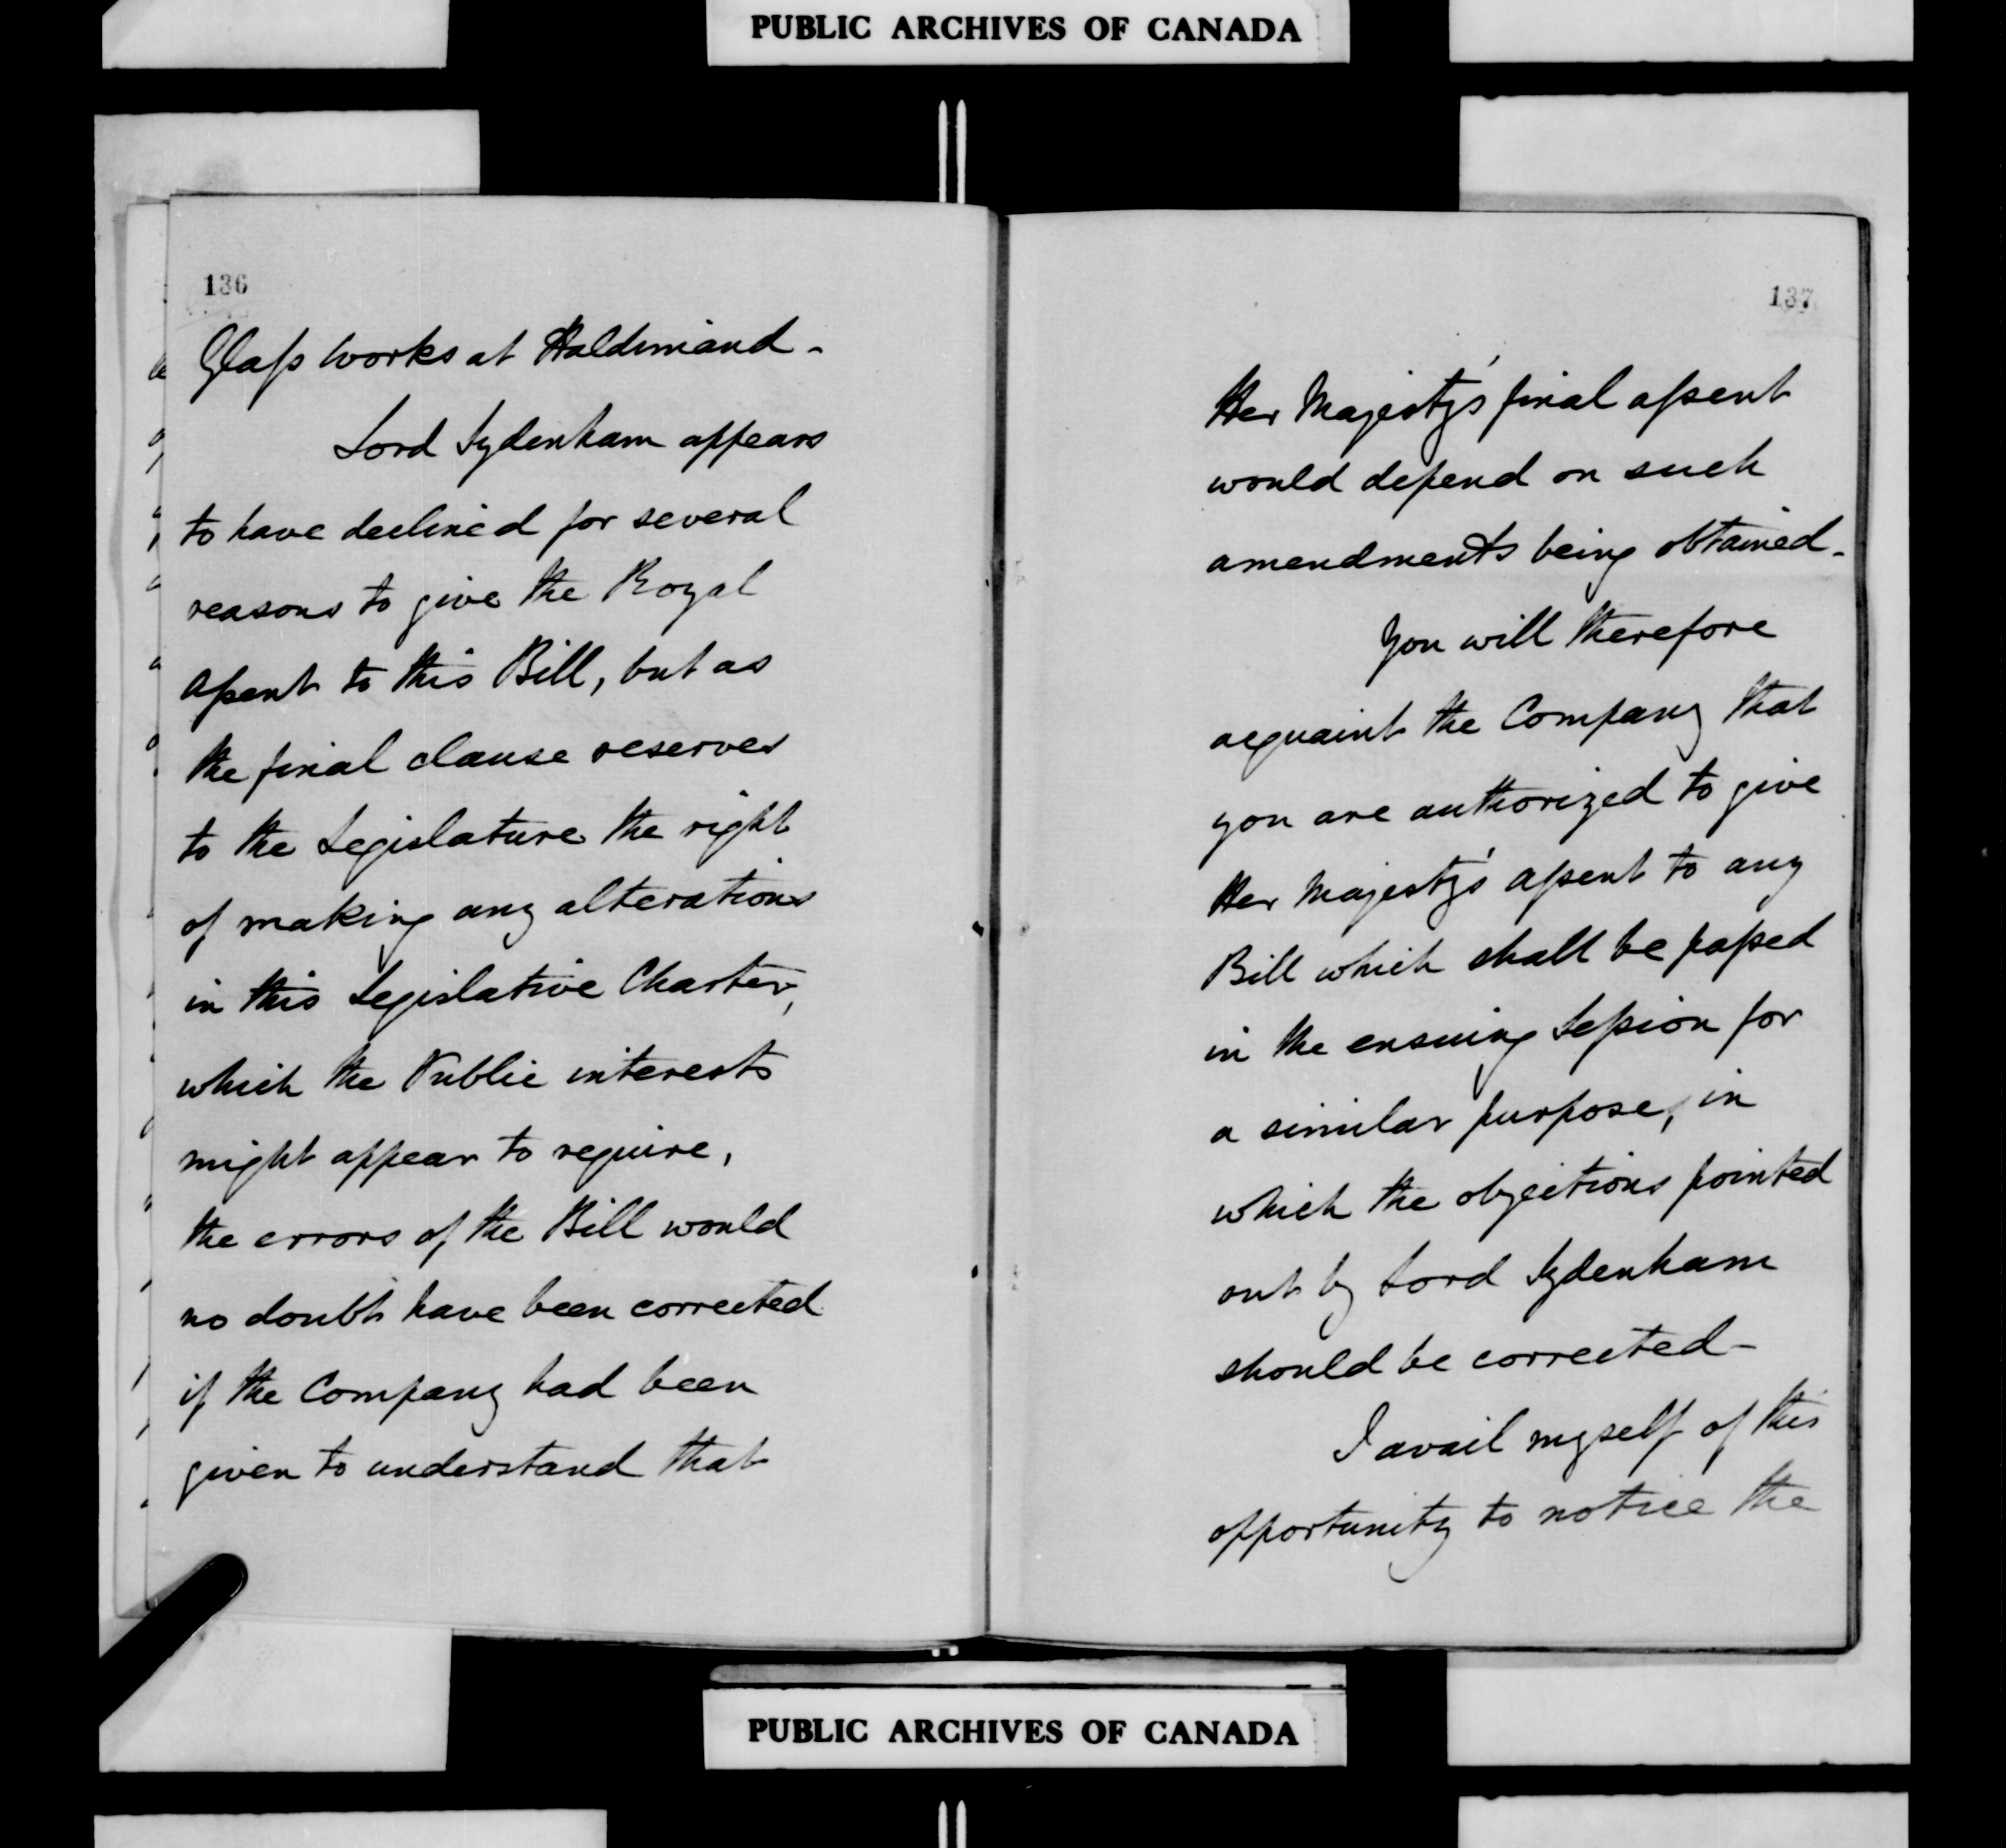 PUBLIC ARCHIVES OF CANADA
136
Glass Works at Haldimand -
Lord Sydenham appears
to have declined for several
reasons to give the Royal
Assent to this Bill, but as
the final clause reserves
to the Legislature the right
of making any alterations
in this Legislative Charter,
which the Public interests
might appear to require,
the errors of the Bill would
no doubt have been corrected
if the Company had been
given to understand that
137
Her Majesty's final assent
would depend on such
amendments being obtained -
You will therefore
acquaint the Company that
you are authorized to give
Her Majesty's assent to any
Bill which shall be passed
in the ensuing Session for
a similar purpose, in
which the objections pointed
out by Lord Sydenham
should be corrected -
I avail myself of this
opportunity to notice the
PUBLIC ARCHIVES OF CANADA